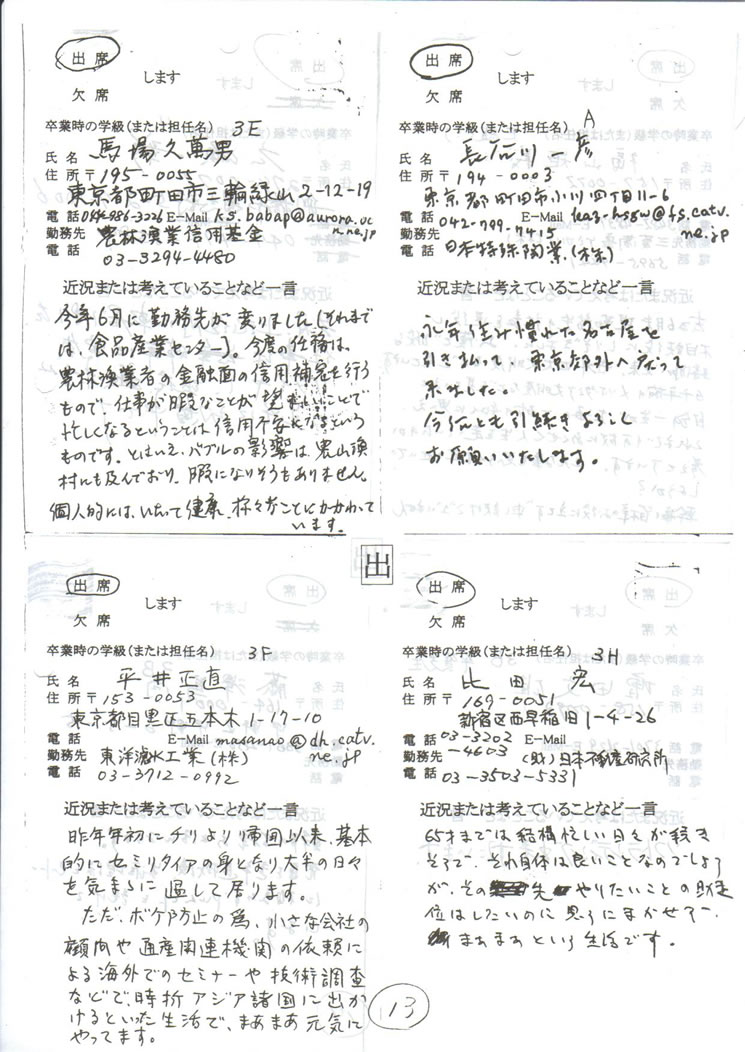 出席
します
欠席
卒業時の学級(または担任名) 3E
氏名 馬場久萬男
住所〒195-0055
東京都町田市三輪緑山2-12-19
電話044-986-3226 E-Mail ks.babap@aurora.oc
n.ne.jp
勤務先 農林漁業信用基金
電話 03-3294-4480
近況または考えていることなど一言
今年6月に勤務先が変りました(それまで
は、食品産業センター)。今度の任務は、
農林漁業者の金融面の信用補完を行う
もので、仕事が暇なことが望ましいことで
忙しくなるということは信用不安になるという
ものです。とはいえ、バブルの影響は農山漁
村にも及んでおり、暇になりそうもありません。
個人的には、いたって健康、様々なことにかかわって
います。
出席
します
欠席
卒業時の学級(または担任名) A
氏名 長谷川一彦
住所〒194-0003
東京都町田市小川四丁目11-6
電話 042-799-7415 E-Mail kaz-hsgw@fs.catv.
ne.jp
勤務先 日本特殊陶業(株)
電話
近況または考えていることなど一言
永年住み慣れた名古屋を
引きはらって、東京郊外へ戻って
来ました。
今后とも引続きよろしく
お願いいたします。
出
出席
します
欠席
卒業時の学級(または担任名) 3F
氏名 平井正直
住所〒153-0053
東京都目黒区五本木1-17-10
電話 E-Mail masanao@dh.catv.
ne.jp
勤務先 東洋濾水工業(株)
電話 03-3712-0992
近況または考えていることなど一言
昨年年初にチリより帰国以来、基本
的にセミリタイアの身となり大半の日々
を気ままに過して居ります。
ただ、ボケ防止の為、小さな会社の
顧問や通産関連機関の依頼に
よる海外でのセミナーや技術調査
などで、時折アジア諸国に出か
けるといった生活で、まあまあ元気に
やってます。
出席
します
欠席
卒業時の学級(または担任名) 3H
氏名 比田 宏
住所〒169-0051
新宿区西早稲田1-4-26
電話 03-3202 E-Mail
-4603
勤務先 (財)日本不動産研究所
電話 03-3503-5331
近況または考えていることなど一言
65才までは結構忙しい日々が続き
そうで、それ自体は良いことなのでしょう
が、その先やりたいことの助走
位はしたいのに思うにまかせず、
まあまあという生活です。
13